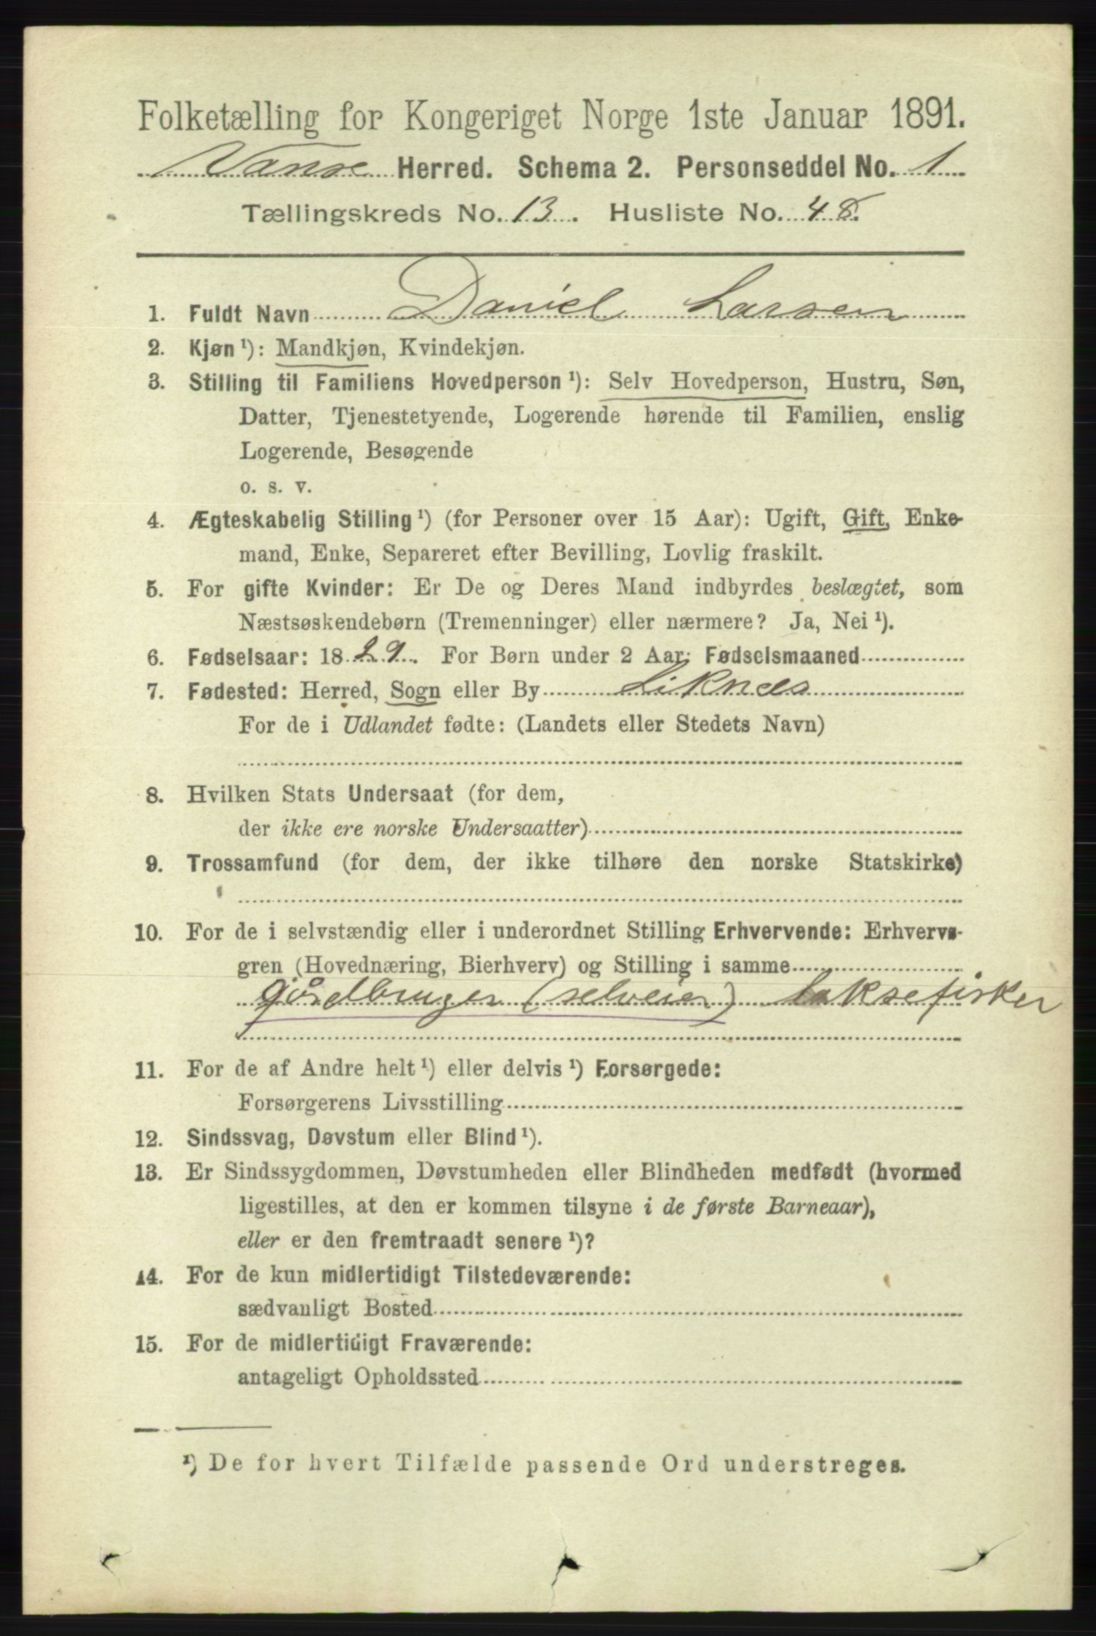 Folketælling for Kongeriget Norge 1ste Januar 1891.
Vanse Herred. Schema 2. Personseddel No. 1
Tællingskreds No. 13. Husliste No. 48.
1. Fuldt Navn Daniel Larsen
2. Kjøn¹): Mandkjøn, Kvindekjøn.
3. Stilling til Familiens Hovedperson¹): Selv Hovedperson, Hustru, Søn,
Datter, Tjenestetyende, Logerende hørende til Familien, enslig
Logerende, Besøgende
o. s. v.
4. Ægteskabelig Stilling¹) (for Personer over 15 Aar): Ugift, Gift, Enke-
mand, Enke, Separeret efter Bevilling, Lovlig fraskilt.
5. For gifte Kvinder: Er De og Deres Mand indbyrdes beslægtet, som
Næstsøskendebørn (Tremenninger) eller nærmere? Ja, Nei¹).
6. Fødselsaar: 1829. For Børn under 2 Aar: Fødselsmaaned
7. Fødested: Herred, Sogn eller By Liknæs
For de i Udlandet fødte: (Landets eller Stedets Navn)
8. Hvilken Stats Undersaat (for dem,
der ikke ere norske Undersaatter)
9. Trossamfund (for dem, der ikke tilhøre den norske Statskirke)
10. For de i selvstændig eller i underordnet Stilling Erhvervende: Erhvervs-
gren (Hovednæring, Bierhverv) og Stilling i samme
gårdbruger (selveier) laksefisker
11. For de af Andre helt¹) eller delvis¹) Forsørgede:
Forsørgerens Livsstilling
12. Sindssvag, Døvstum eller Blind¹).
13. Er Sindssygdommen, Døvstumheden eller Blindheden medfødt (hvormed
ligestilles, at den er kommen tilsyne i de første Barneaar),
eller er den fremtraadt senere¹)?
14. For de kun midlertidigt Tilstedeværende:
sædvanligt Bosted
15. For de midlertidigt Fraværende:
antageligt Opholdssted
¹) De for hvert Tilfælde passende Ord understreges.